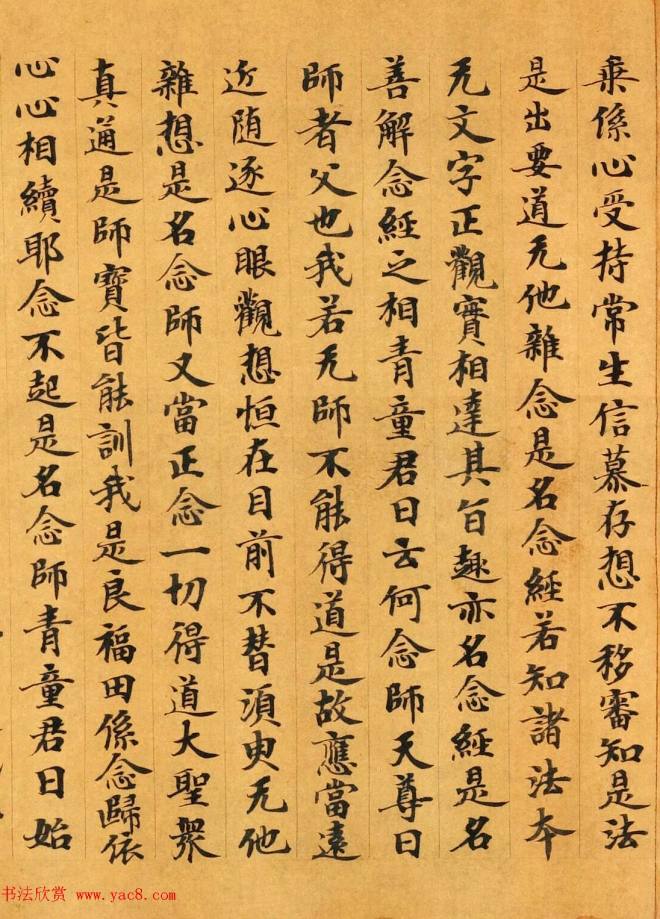 乗係心受持常生信慕存想不移審知是法
是出要道无他雜念是名念經若知諸法本
无文字正觀實相達其旨趣亦名念經是名
善解念經之相青童君曰云何念師天尊曰
師者父也我若无師不能得道是故應當遠
近随逐心眼觀想恒在目前不替須臾无他
雜想是名念師又當正念一切得道大聖衆
真通是師寶皆能訓我是良福田係念歸依
心心相續耶念不起是名念師青童君曰始
书法欣赏 www.yac8.com